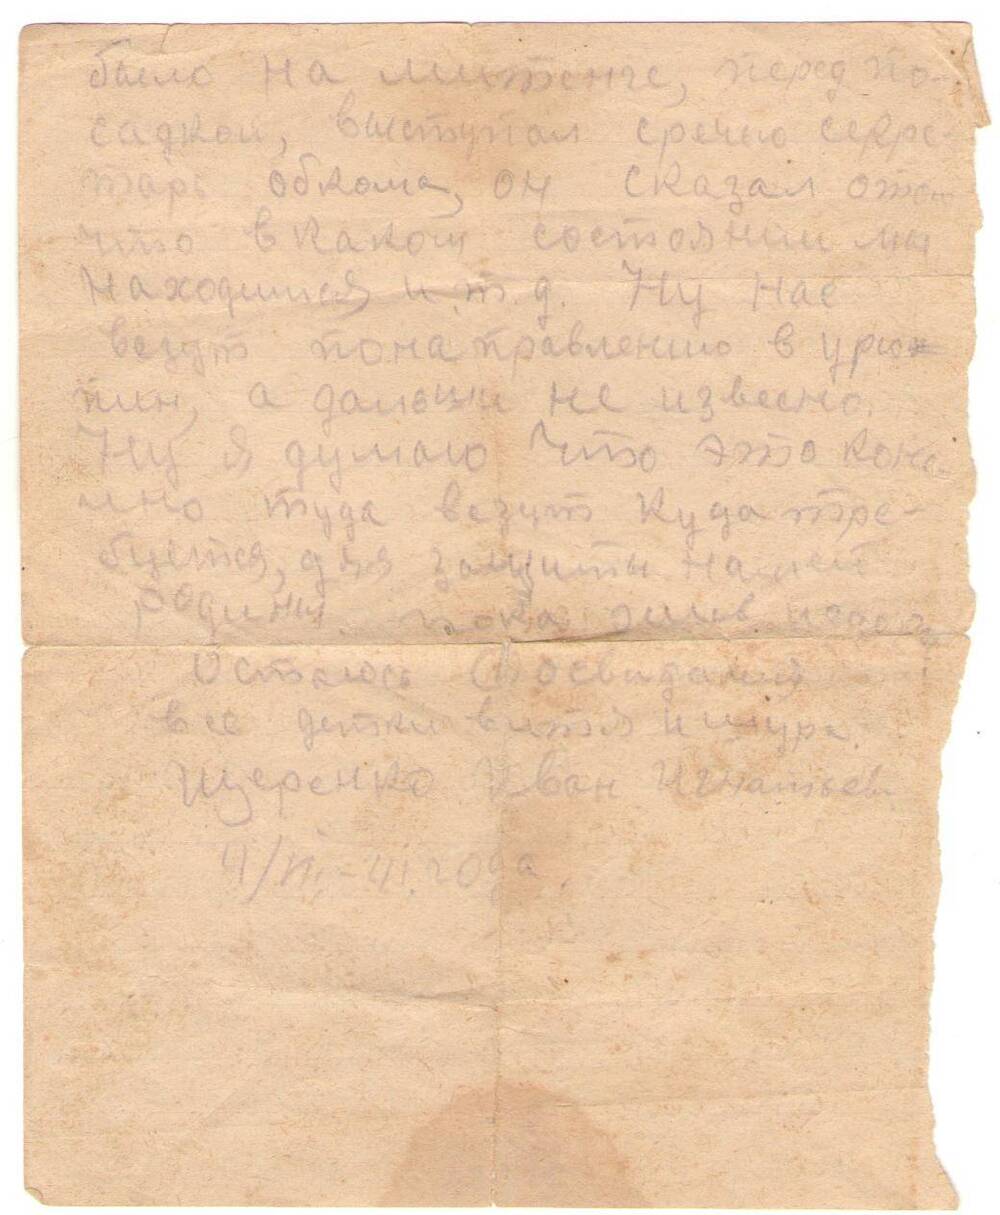 было на митенге, перед по-
садкой, выступал сречью секре-
тарь обкома, он сказал отом
что в каком состоянии мы
находимся и т.д. Ну нас
везут понаправлению в урю-
пин, а дальши не извесно.
Ну я думаю что это коне-
чно туда везут куда тре-
буется, для защиты нашей
родины. пока жив и здоров
Остаюсь досвидания
все детки витя и шура.
Щеренко Иван Игнатьев.
41.года.